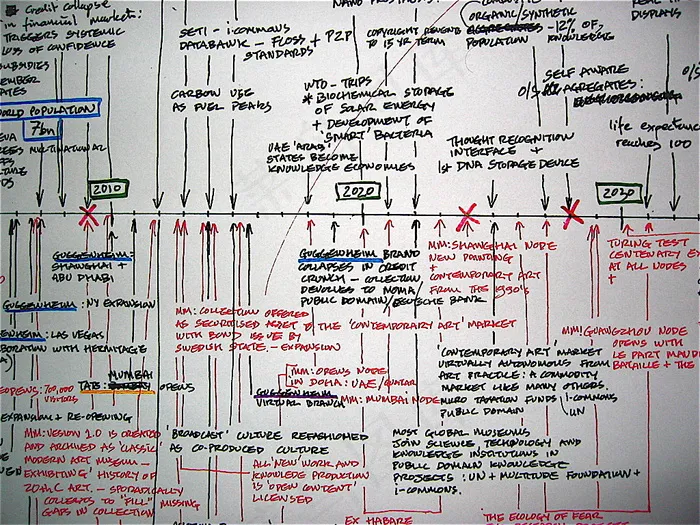 Credit collapse
in financial markets:
TRIGGERS SYSTEMIC
LOSS OF CONFIDENCE
SUBSIDIES
WORLD POPULATION
7bn
MULTINATIONAL
SETI - i-COMMONS
DATABANK - FLOSS + P2P
STANDARDS
CARBON USE
AS FUEL PEAKS
COPYRIGHT REVERTS
TO 15 YR TERM
WTO - TRIPS
* BIOCHEMICAL STORAGE
OF SOLAR ENERGY
+ DEVELOPMENT OF
'SMART' BACTERIA
UAE 'ARAB'
STATES BECOME
KNOWLEDGE ECONOMIES
ORGANIC/SYNTHETIC
POPULATION
-12% OF
DISPLAYS
SELF AWARE
AGGREGATES:
THOUGHT RECOGNITION
INTERFACE +
1st DNA STORAGE DEVICE
life expectancy
reaches 100
2010
2020
2030
GUGGENHEIM:
SHANGHAI +
ABU DHABI
GUGGENHEIM: NY EXPANSION
LAS VEGAS
WITH HERMITAGE
MUMBAI
OPENS
700,000
VISITORS
EXPANSION + RE-OPENING
MM: VERSION 1.0 IS CREATED
AND ARCHIVED AS 'CLASSIC
MODERN ART MUSEUM -
EXHIBITING' HISTORY OF
20th C ART. - SPORADICALLY
COLLECTS TO "FILL" MISSING
GAPS IN COLLECTION
MM: COLLECTION OFFERED
AS SECURITISED ASSET TO THE 'CONTEMPORARY ART' MARKET
WITH BOND ISSUE BY
SWEDISH STATE. - EXPANSION
GUGGENHEIM BRAND
COLLAPSES IN CREDIT
CRUNCH - COLLECTION
DEVOLVES TO MOMA/
PUBLIC DOMAIN/DEUTSCHE BANK
MM: SHANGHAI NODE
NEW PAINTING
+
CONTEMPORARY ART
FROM THE 1990's
TURING TEST
CENTENARY
AT ALL NODES
+
MM: OPENS NODE
IN DOHA: UAE/QATAR
GUGGENHEIM
VIRTUAL BRANCH
MM: MUMBAI NODE
MM! GUANGZHOU NODE
OPENS WITH
BATAILLE + THE
'CONTEMPORARY ART' MARKET
VIRTUALLY AUTONOMOUS FROM
ART PRACTICE: A COMMODITY
MARKET LIKE MANY OTHERS.
MICRO TAXATION FUNDS
PUBLIC DOMAIN
i-COMMONS
UN
'BROADCAST' CULTURE REFASHIONED
AS CO-PRODUCED CULTURE
ALL 'NEW' WORK AND
KNOWLEDGE PRODUCTION
IS 'OPEN CONTENT'
LICENSED
MOST GLOBAL MUSEUMS
JOIN SCIENCE, TECHNOLOGY AND
KNOWLEDGE INSTITUTIONS IN
PUBLIC DOMAIN KNOWLEDGE
PROJECTS: UN + MULTITUDE FOUNDATION +
i-COMMONS.
EX HABARE
THE ECOLOGY OF FEAR